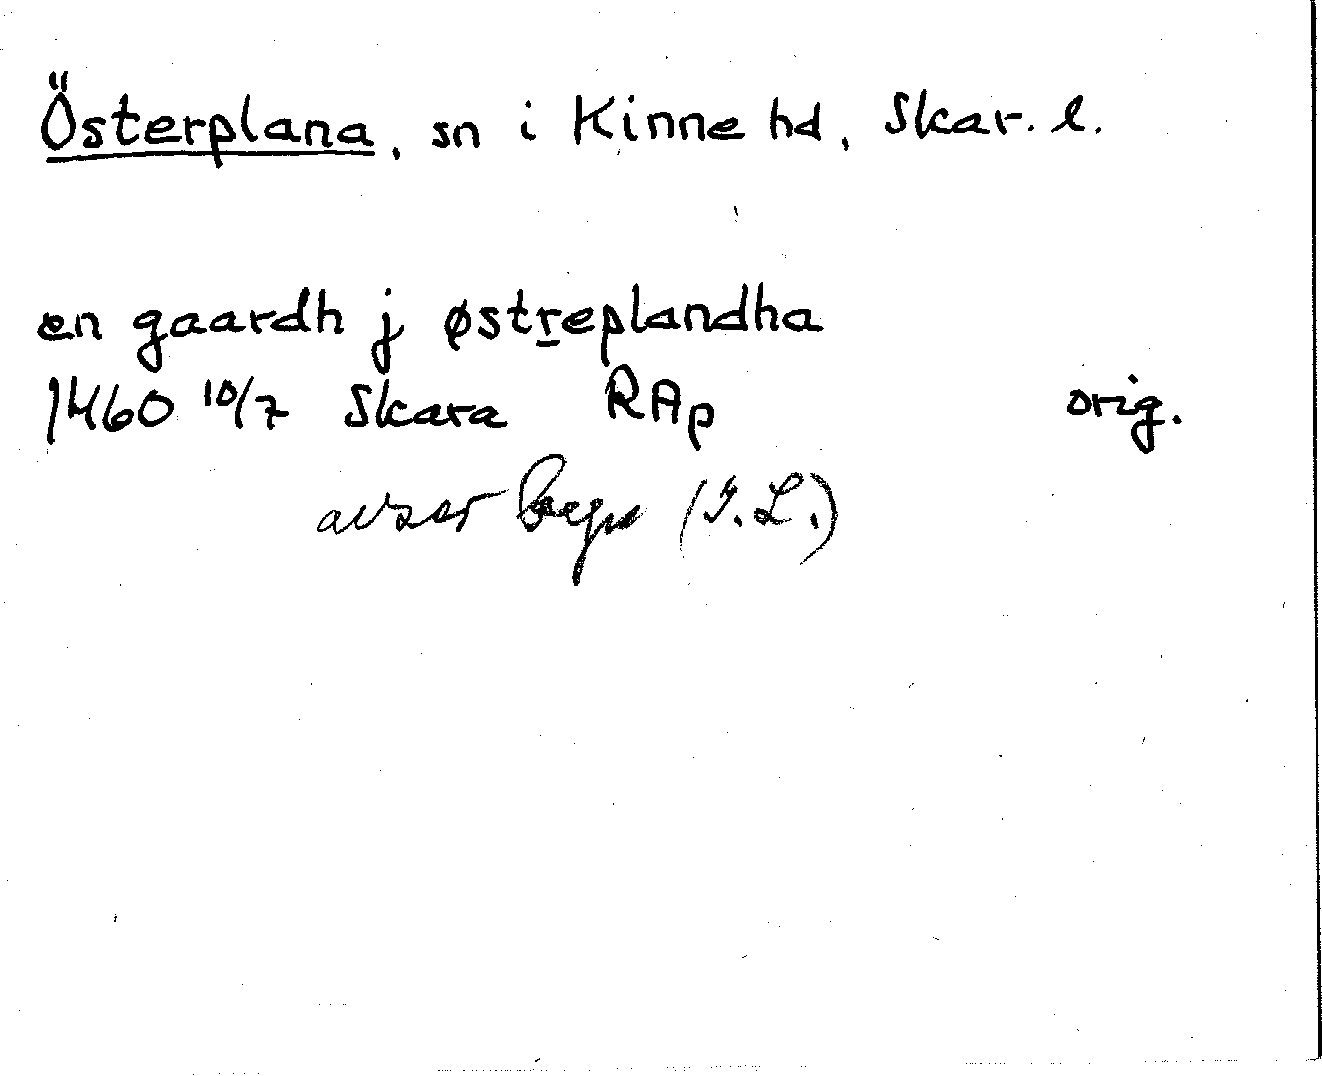 Österplana, sn i Kinne hd, Skar. l.
en gaardh j østreplandha
1460 10/7 Skara RAp orig.
avser (I.L.)